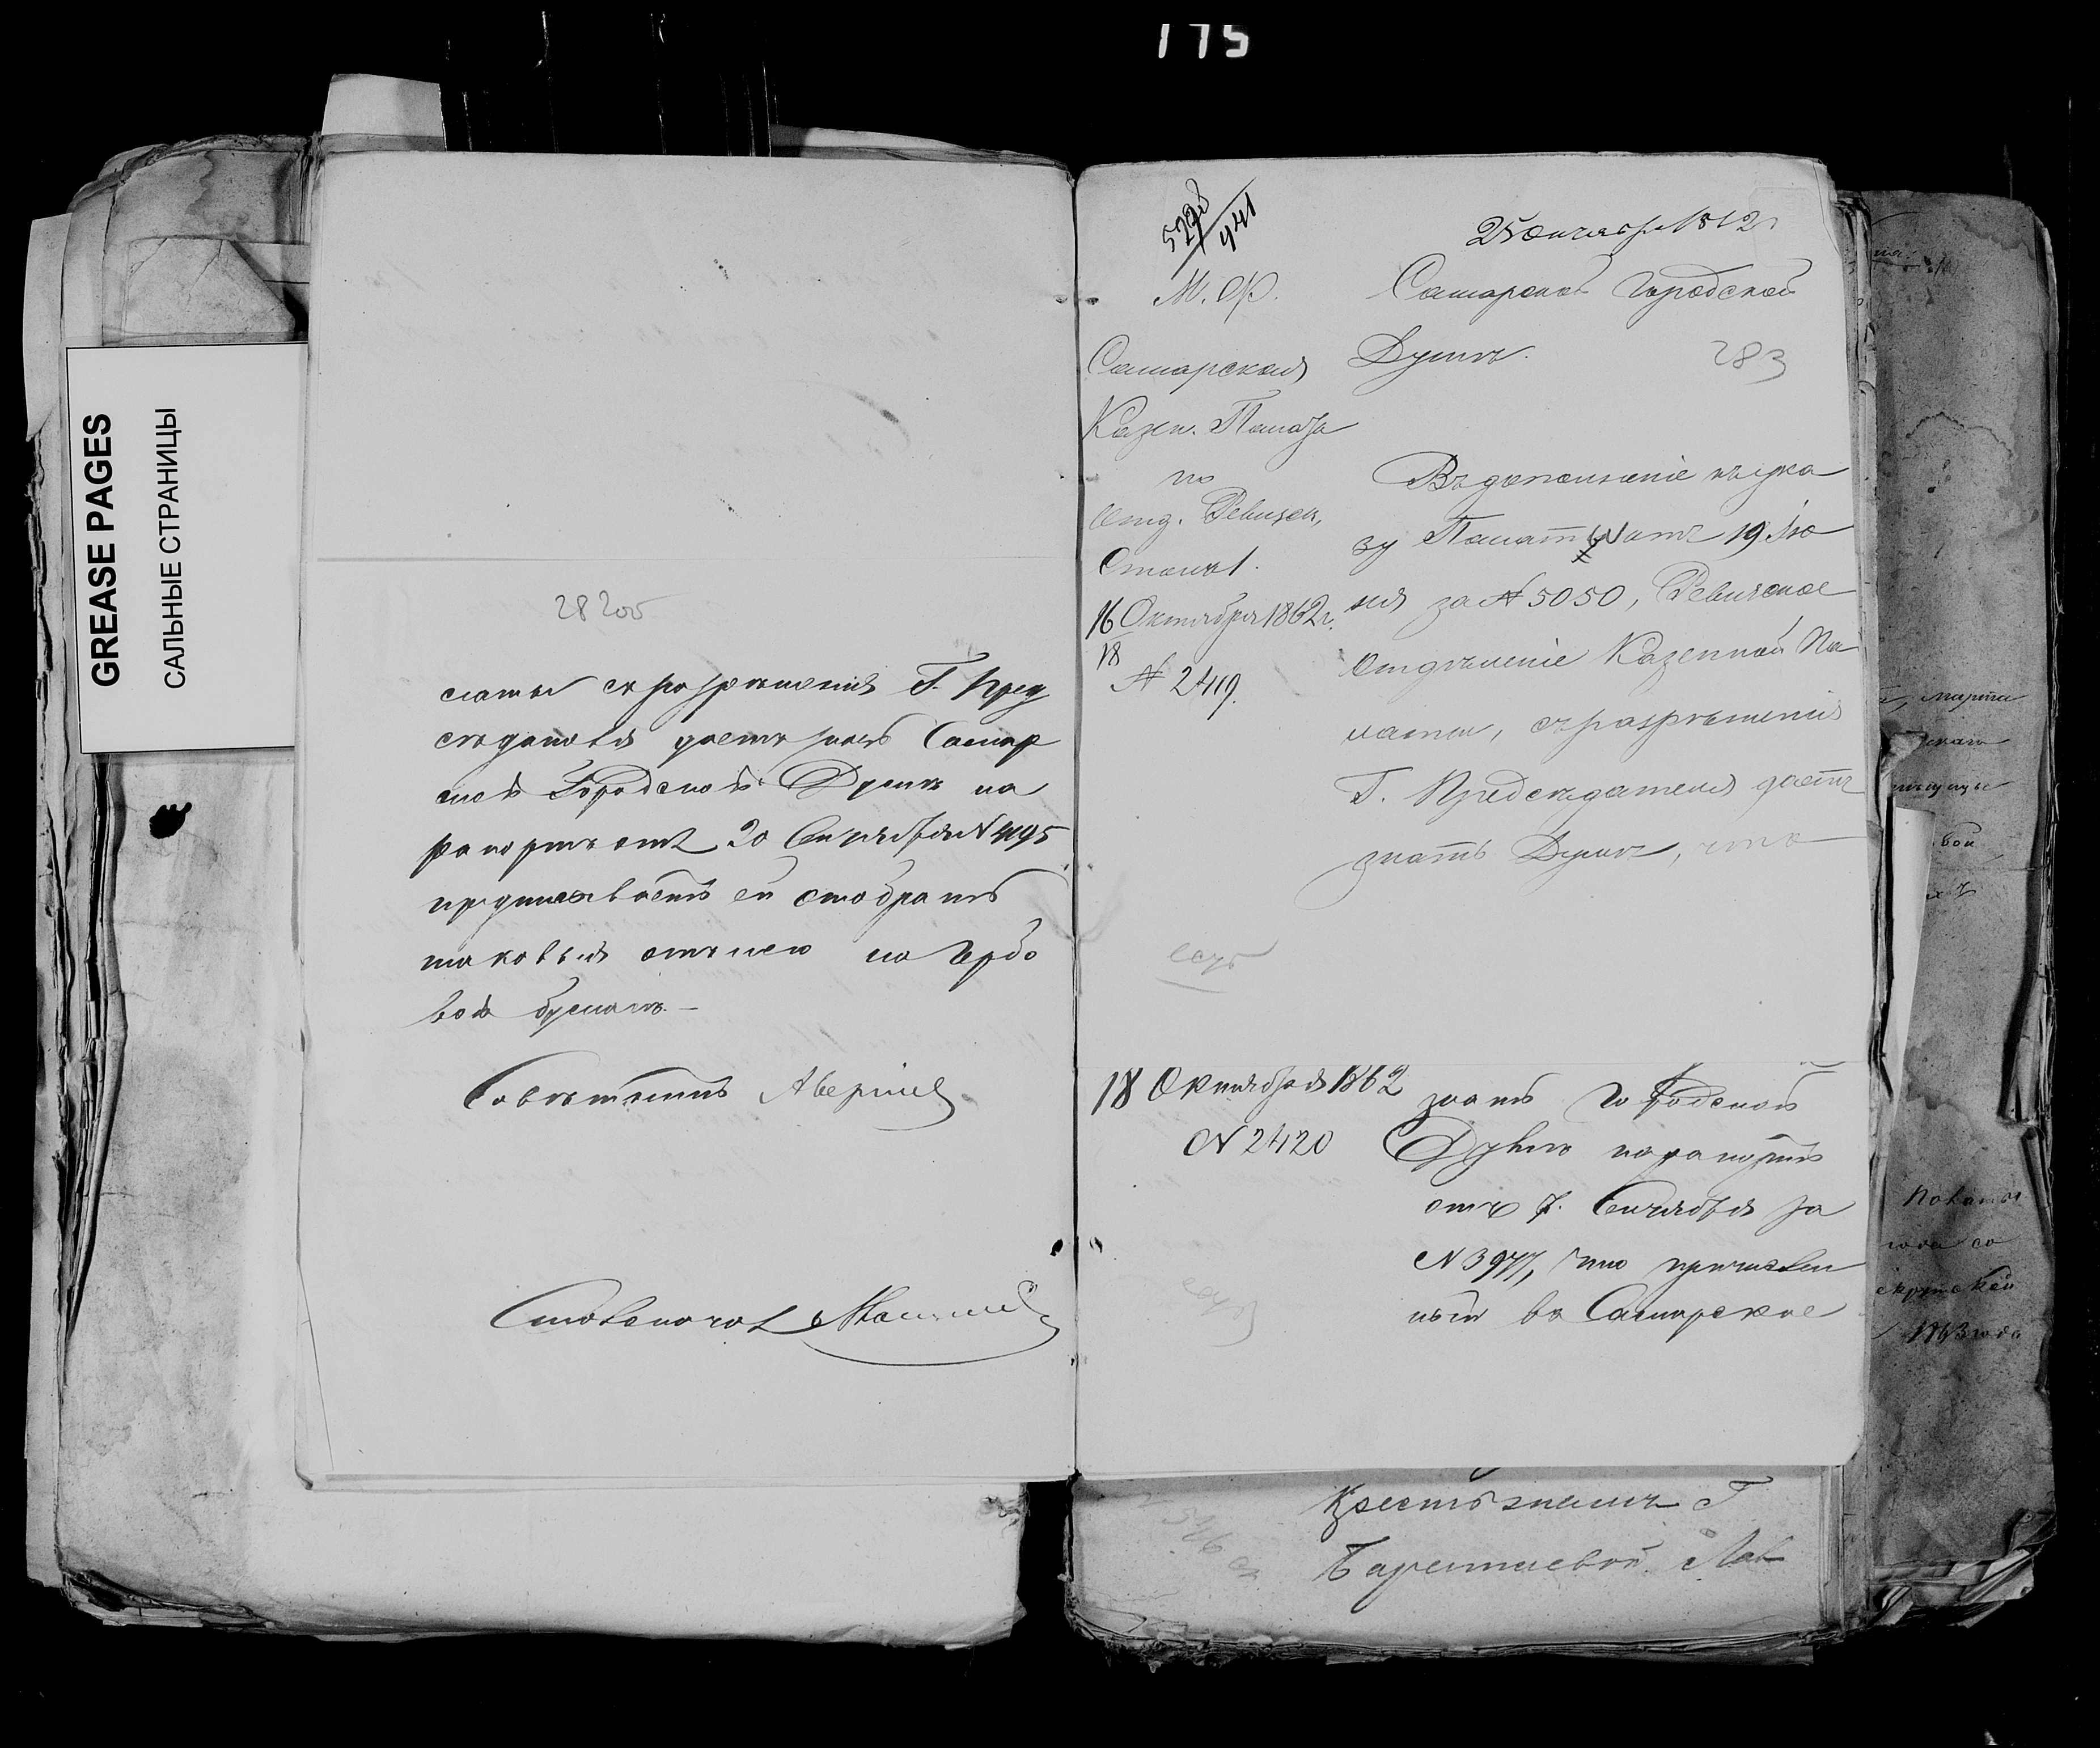 175
GREASE PAGES
САЛЬНЫЕ СТРАНИЦЫ
282об
латы съ разрѣшенія Г. Пред
сѣдателя даетъ знать Самар
ской Городской Думѣ на
рапортъ отъ 20 Сентября № 4195
предписываетъ ей отобрать
таковыя отъ нею на гербо
вой бумагѣ. –
Совѣтникъ
Столоначал
5228/941
25 Октября 1862
М. Ф.
Самарская
Казен. Палата
по
Отд. Ревизск.
Столъ 1.
16 Октября 1862 г.
18
№ 2419.
Самарской Городской
Думѣ.
283
Въ дополненіе къ ука
зу Палаты отъ 19 Ію
ня за № 5050, Ревизское
Отдѣленіе Казенной Па
латы, съ разрѣшенія
Г. Предсѣдателя даетъ
знать Думѣ, что
18 Октября 1862
№ 2420
знать Городской
Думѣ на рапортъ
отъ 7. Сентября за
№ 3977, что причислен
ный въ Самарское
Крестьянамъ Г
марта
1863 года